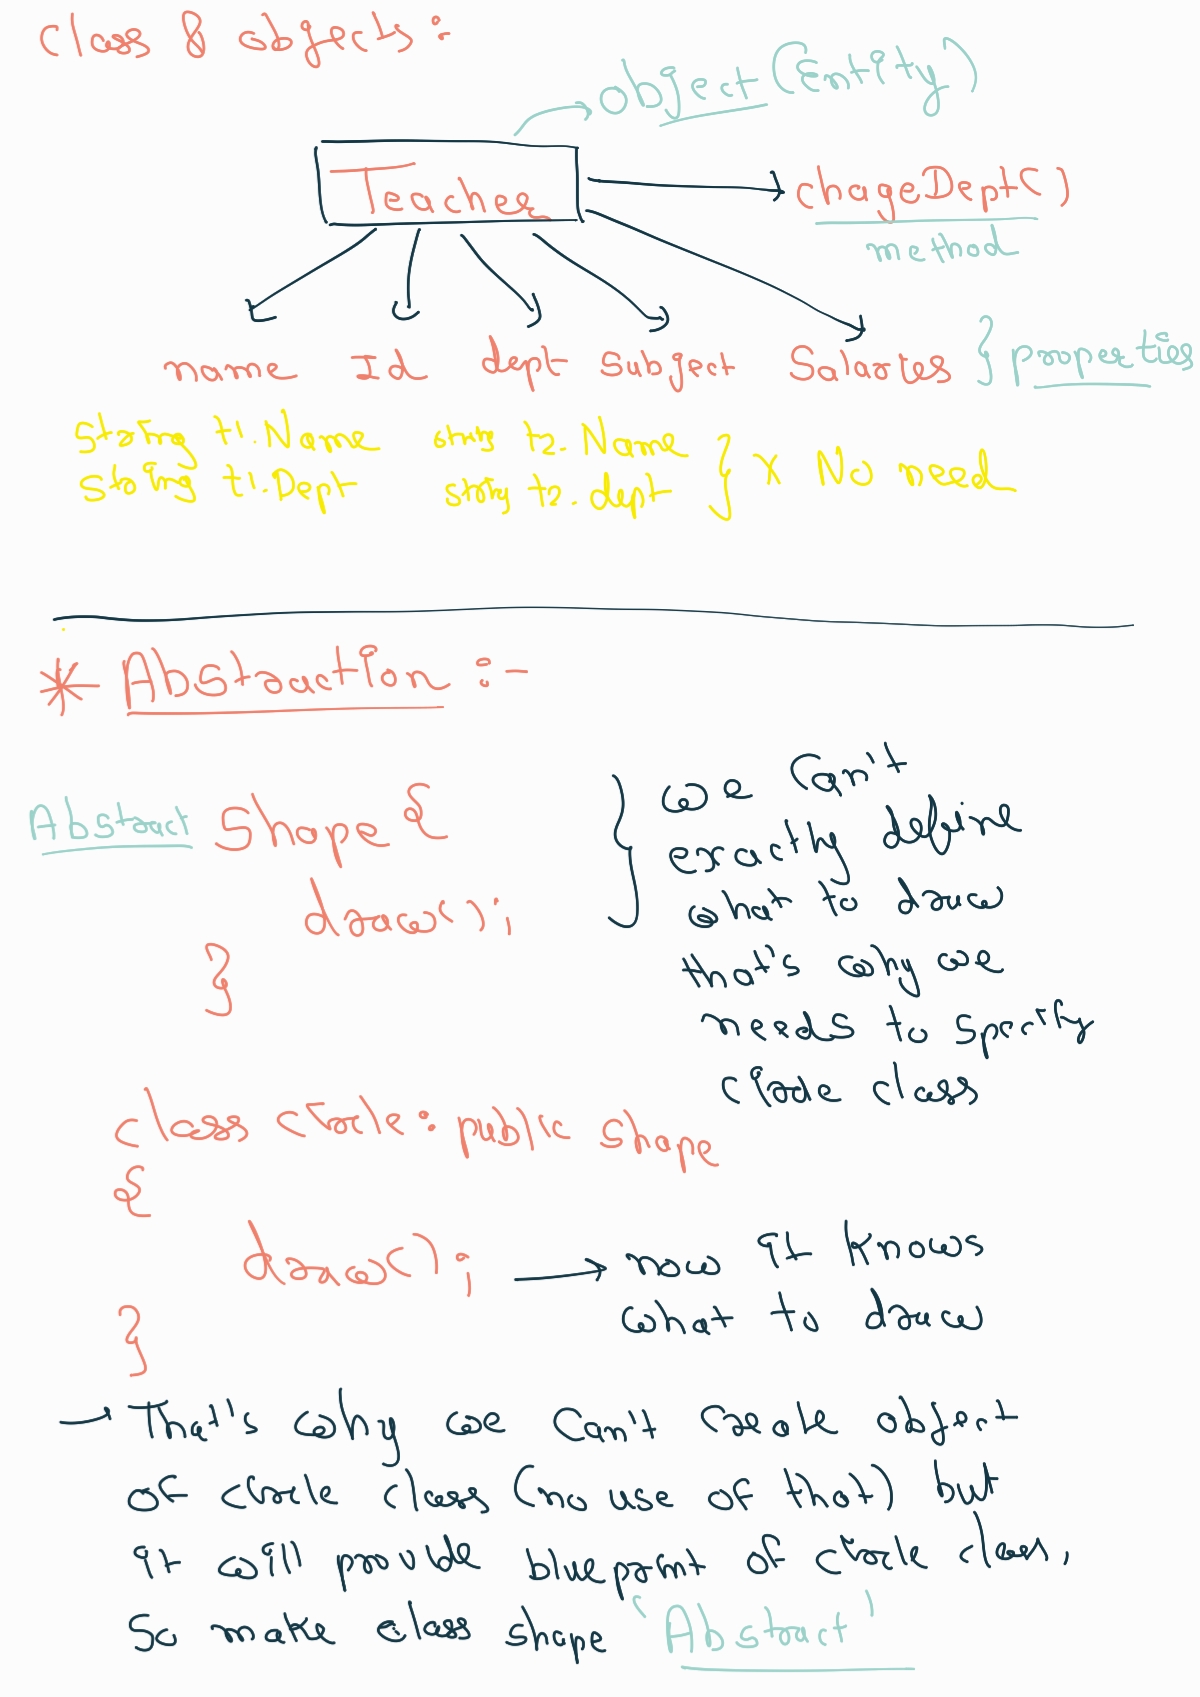 Class & objects:
object (Entity)
Teacher
chageDept()
method
name Id dept Subject Salaries } properties
String t1.Name string t2.Name
String t1.Dept string t2.dept } x No need
* Abstraction :-
Abstract Shape {
draw();
}
} we can't
exactly define
what to draw
that's why we
needs to specify
circle class
class circle: public shape
{
draw(); → now it knows
what to draw
}
→ That's why we can't create object
of circle class (no use of that) but
it will provide blueprint of circle class,
So make class shape 'Abstract'